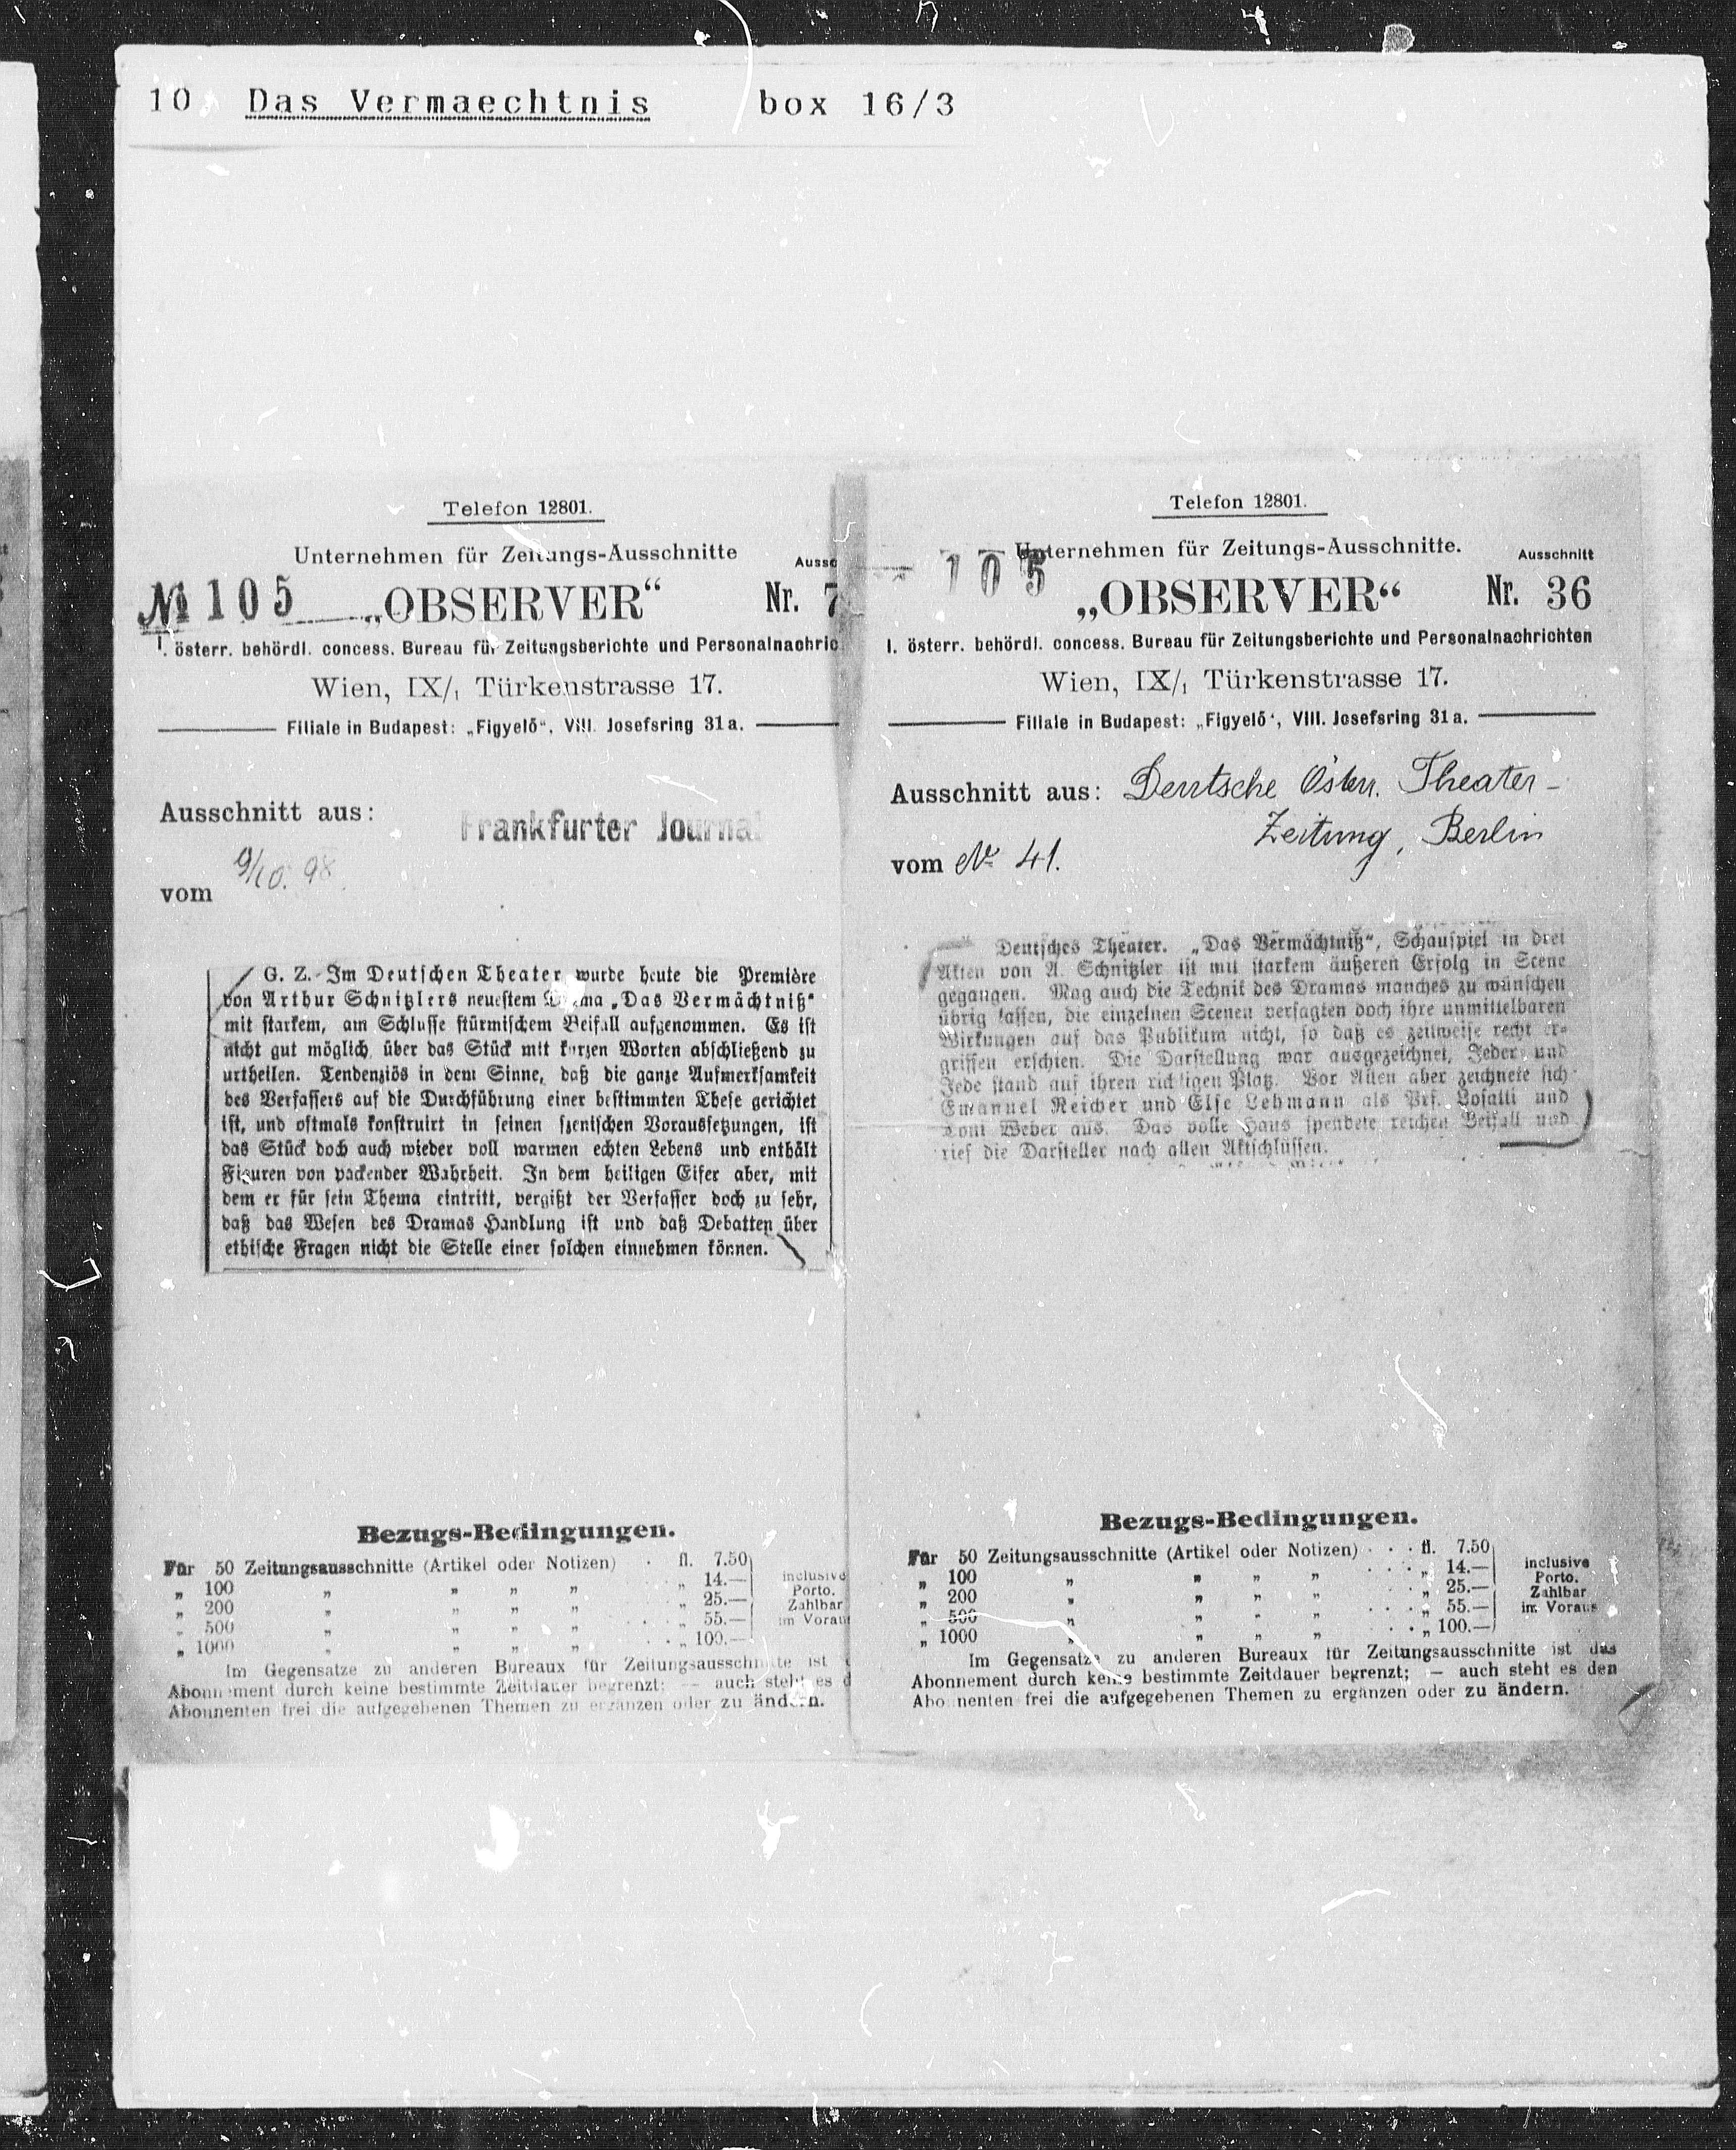 10 Das Vermaechtnis box 16/3
Telefon 12801.
Unternehmen für Zeitungs-Ausschnitte
Aussc
№ 105 „OBSERVER“ Nr. 7
I. österr. behördl. concess. Bureau für Zeitungsberichte und Personalnachric
Wien, IX/1 Türkenstrasse 17.
Filiale in Budapest: „Figyelő“, VIII. Josefsring 31a.
Ausschnitt aus: Frankfurter Journal
vom 9/10. 98.
G. Z. Im Deutschen Theater wurde heute die Première
von Arthur Schnitzlers neuestem Drama „Das Vermächtniß“
mit starkem, am Schlusse stürmischem Beifall aufgenommen. Es ist
nicht gut möglich über das Stück mit kurzen Worten abschließend zu
urtheilen. Tendenziös in dem Sinne, daß die ganze Aufmerksamkeit
des Verfassers auf die Durchführung einer bestimmten These gerichtet
ist, und oftmals konstruirt in seinen szenischen Voraussetzungen, ist
das Stück doch auch wieder voll warmen echten Lebens und enthält
Figuren von packender Wahrheit. In dem heiligen Eifer aber, mit
dem er für sein Thema eintritt, vergißt der Verfasser doch zu sehr,
daß das Wesen des Dramas Handlung ist und daß Debatten über
ethische Fragen nicht die Stelle einer solchen einnehmen können.
Bezugs-Bedingungen.
Für 50 Zeitungsausschnitte (Artikel oder Notizen) . fl. 7.50
„ 100 „ „ „ „ „ 14.—
„ 200 „ „ „ „ „ 25.—
„ 500 „ „ „ „ „ 55.—
„ 1000 „ „ „ „ „ 100.—
inclusive
Porto.
Zahlbar
im Voraus
Im Gegensatze zu anderen Bureaux für Zeitungsausschnitte ist
Abonnement durch keine bestimmte Zeitdauer begrenzt; — auch steht es d
Abonnenten frei die aufgegebenen Themen zu ergänzen oder zu ändern.
Telefon 12801.
105 Unternehmen für Zeitungs-Ausschnitte.
Ausschnitt
„OBSERVER“ Nr. 36
I. österr. behördl. concess. Bureau für Zeitungsberichte und Personalnachrichten
Wien, IX/1 Türkenstrasse 17.
Filiale in Budapest: „Figyelő“, VIII. Josefsring 31a.
Ausschnitt aus: Deutsche Österr. Theater-
Zeitung, Berlin
vom № 41.
Deutsches Theater. „Das Vermächtniß“, Schauspiel in drei
Akten von A. Schnitzler ist mit starkem äußeren Erfolg in Scene
gegangen. Mag auch die Technik des Dramas manches zu wünschen
übrig lassen, die einzelnen Scenen versagten doch ihre unmittelbaren
Wirkungen auf das Publikum nicht, so daß es zeitweise recht er-
griffen erschien. Die Darstellung war ausgezeichnet, Jeder und
Jede stand auf ihren richtigen Platz. Vor Allen aber zeichnete sich
Emanuel Reicher und Else Lehmann als Prf. Losatti und
Toni Weber aus. Das volle Haus spendete reichen Beifall und
rief die Darsteller nach allen Aktschlüssen.
Bezugs-Bedingungen.
Für 50 Zeitungsausschnitte (Artikel oder Notizen) . . . fl. 7.50
„ 100 „ „ „ „ . . . „ 14.—
„ 200 „ „ „ „ „ 25.—
„ 500 „ „ „ „ . . . „ 55.—
„ 1000 „ „ „ „ . . . „ 100.—
inclusive
Porto.
Zahlbar
im Voraus
Im Gegensatze zu anderen Bureaux für Zeitungsausschnitte ist das
Abonnement durch keine bestimmte Zeitdauer begrenzt; — auch steht es den
Abonnenten frei die aufgegebenen Themen zu ergänzen oder zu ändern.